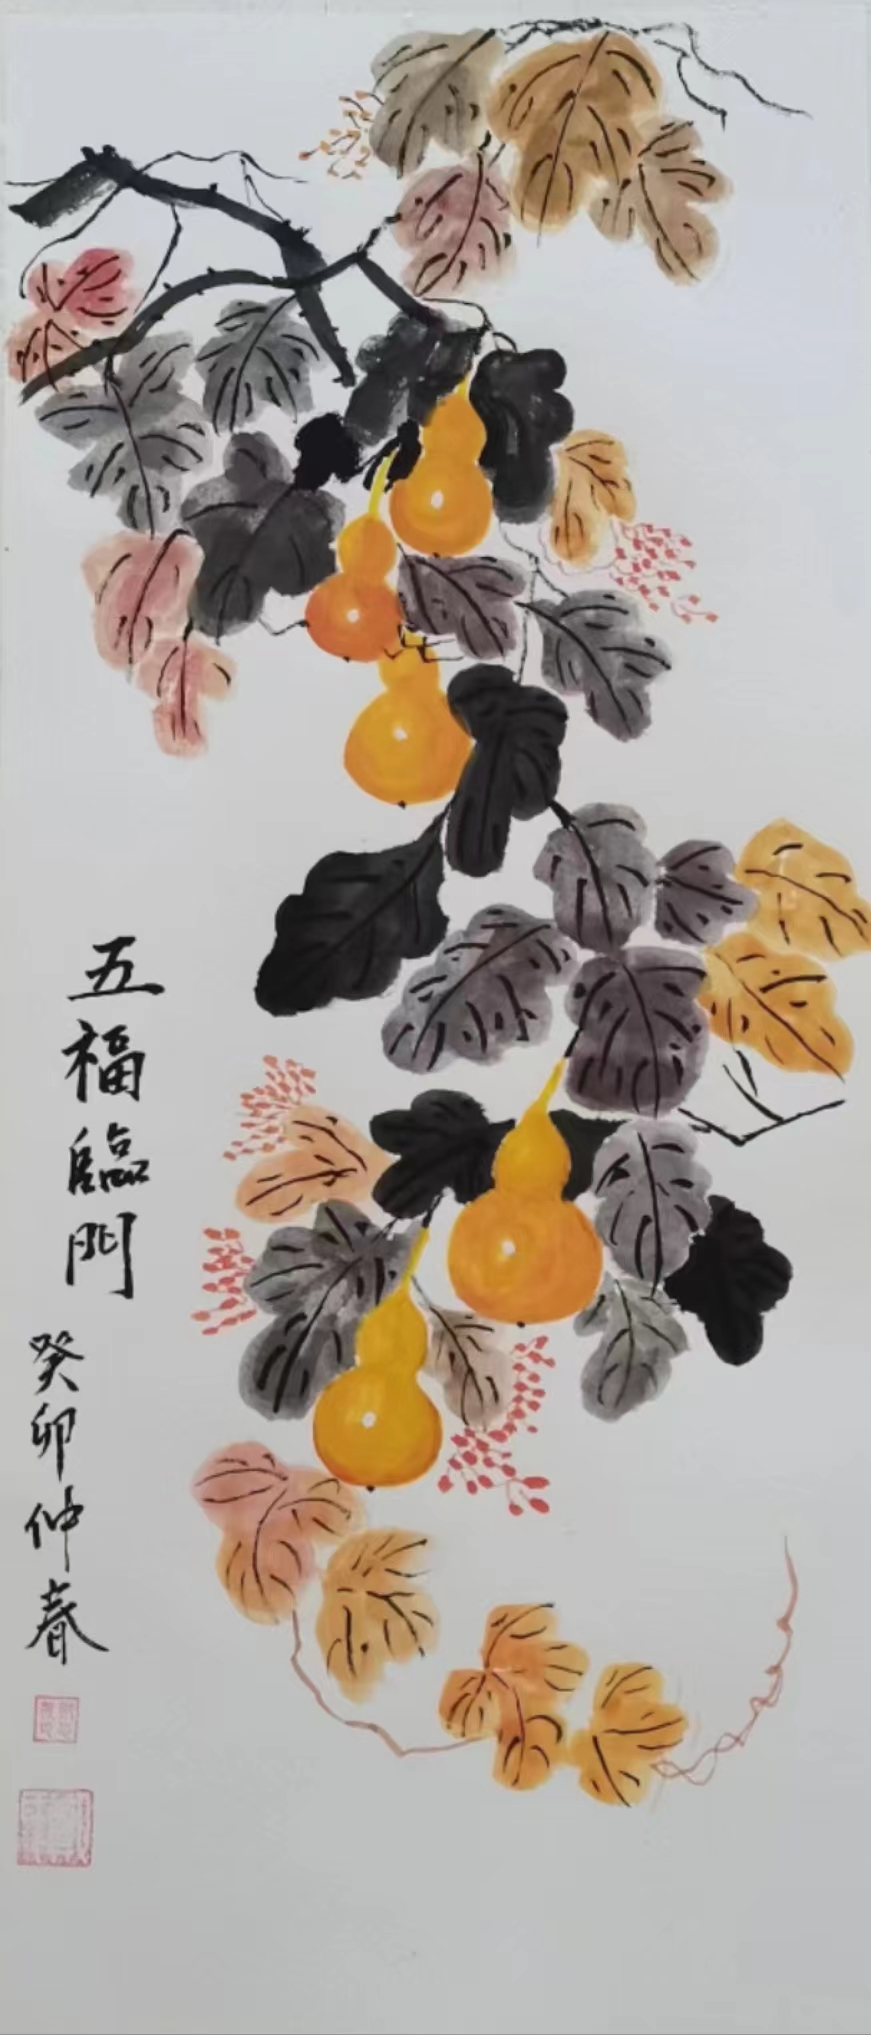 五福臨門
癸卯仲春